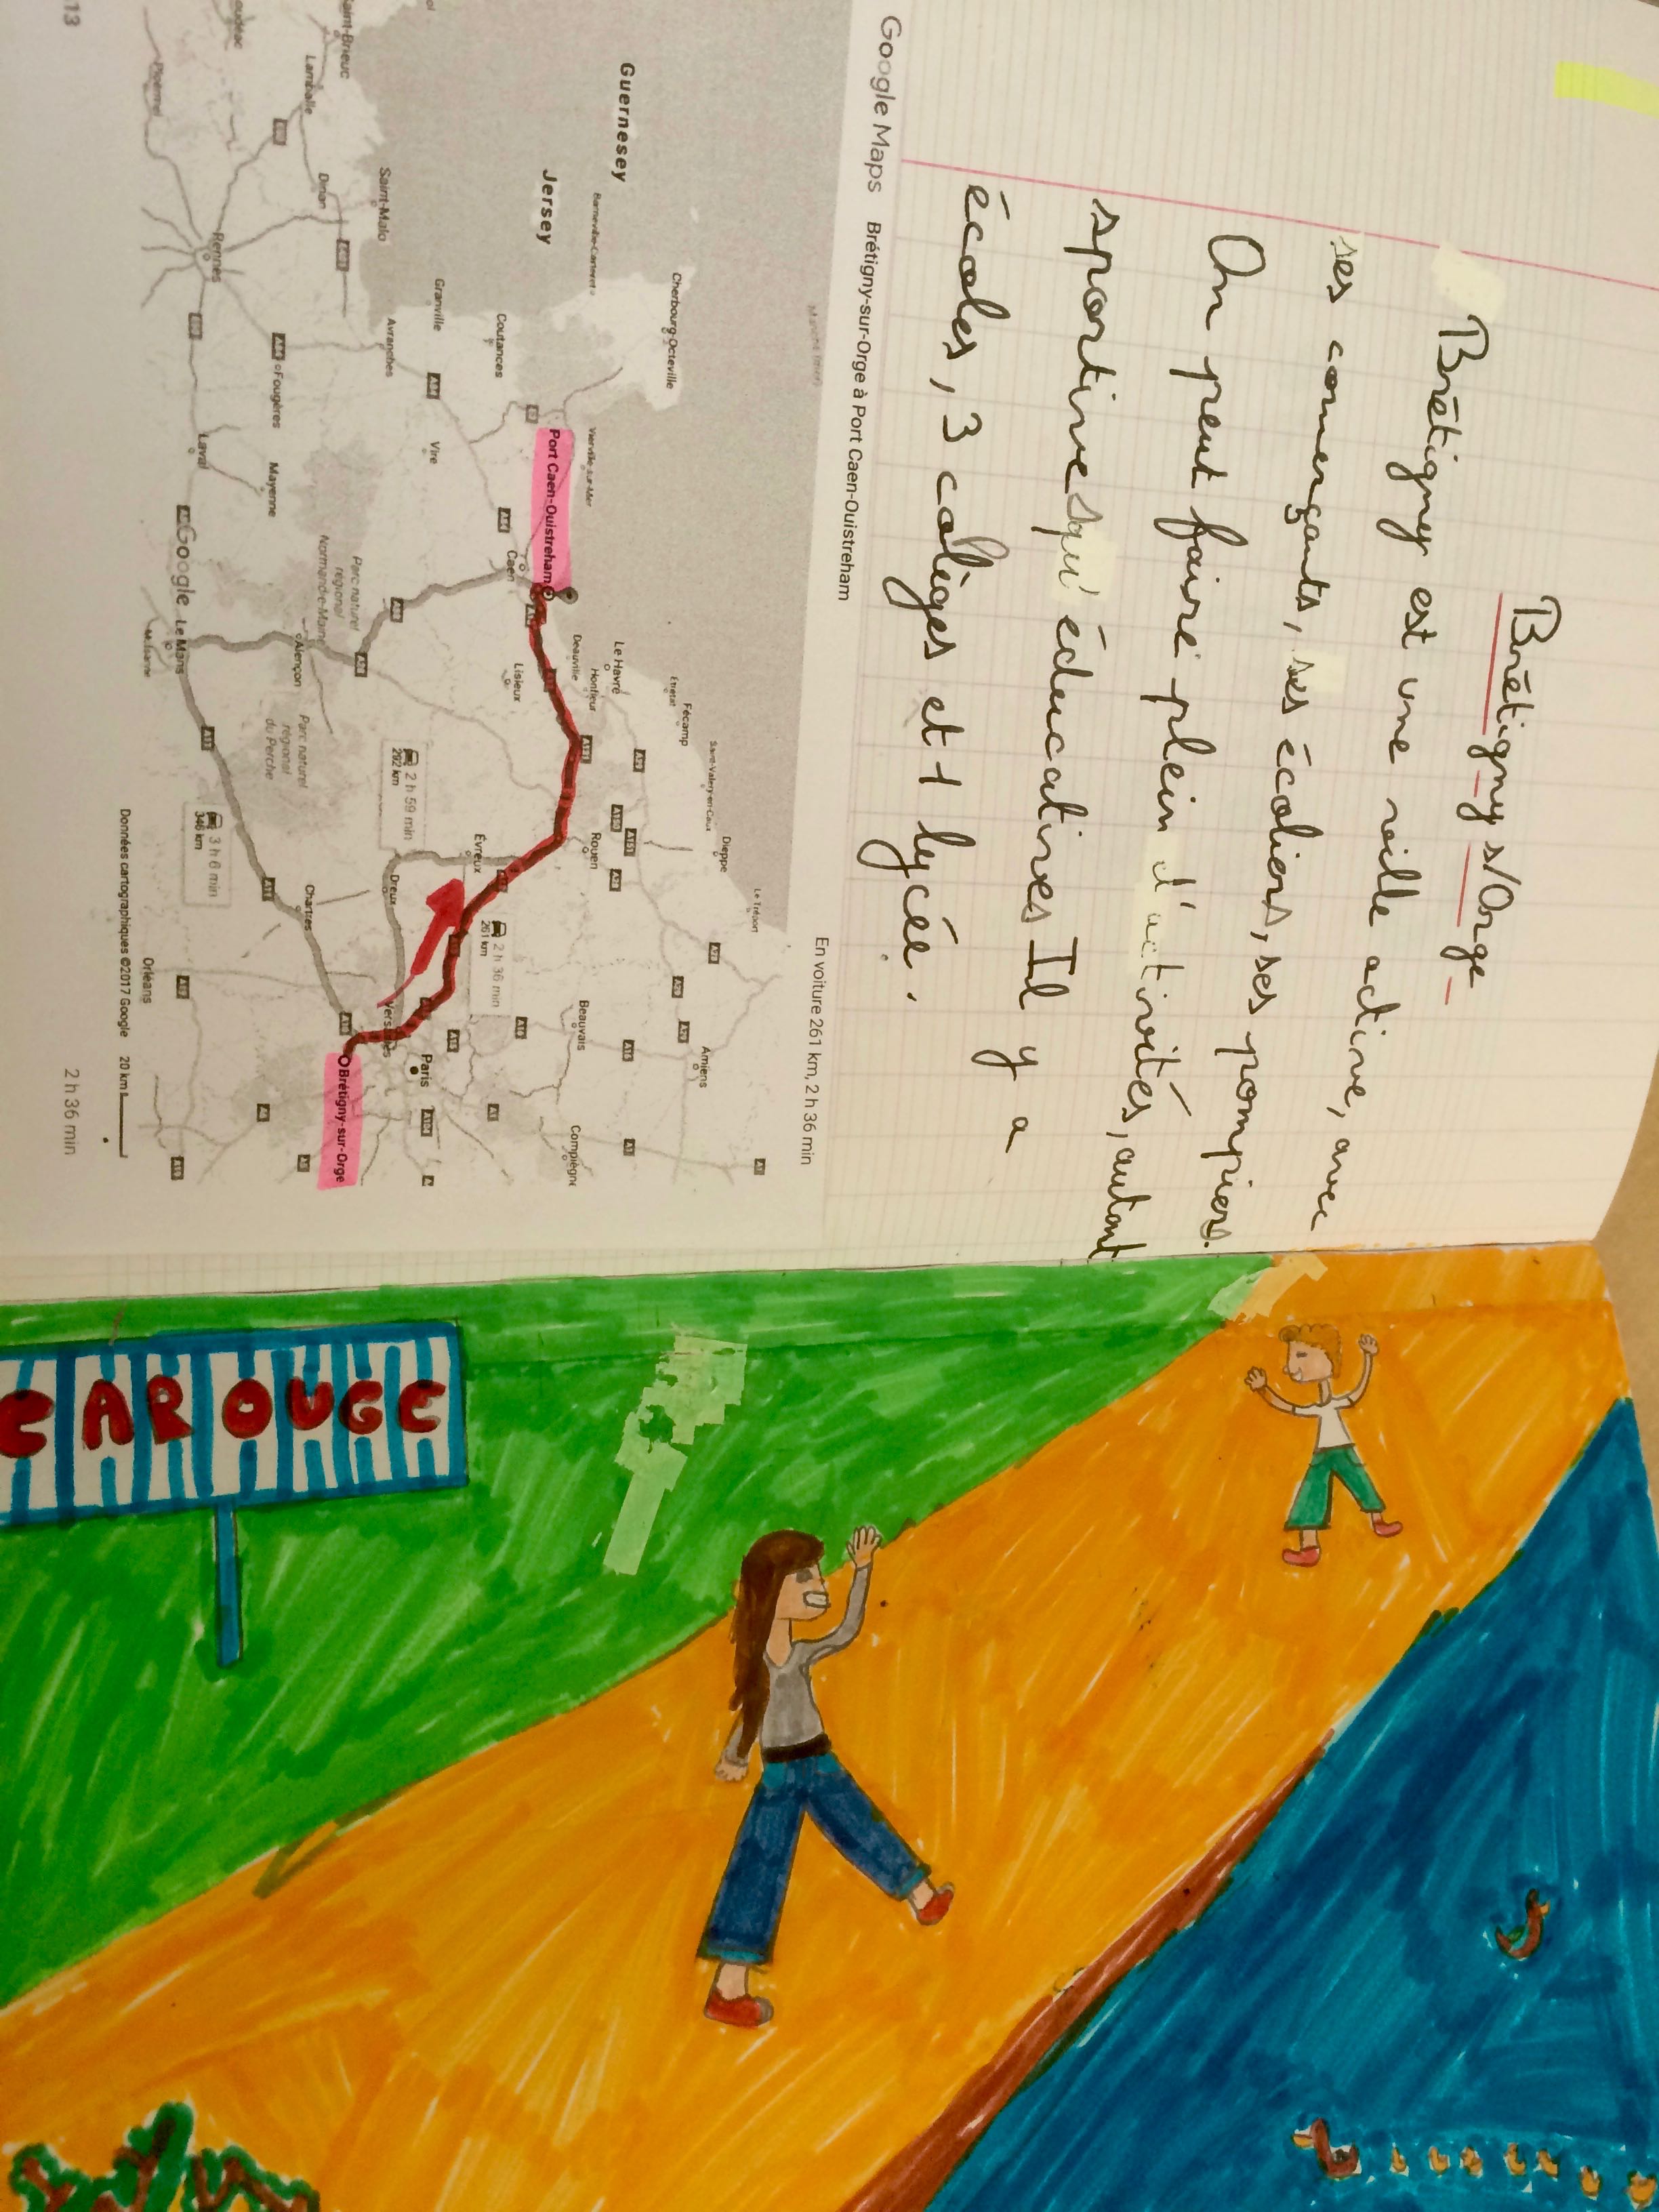 Brétigny s/Orge
Brétigny est une ville active, avec
ses comerçants, ses écoliers, ses pompiers.
On peut faire plein d'activités, autant
sportives qu'éducatives Il y a
écoles, 3 colièges et 1 lycée.
Google Maps Brétigny-sur-Orge à Port Caen-Ouistreham
En voiture 261 km, 2 h 36 min
Le Tréport
Dieppe
Saint-Valery-en-Caux
Fécamp
Étretat
Amiens
Cherbourg-Octeville
Guernesey
Barneville-Carteret
Le Havre
Rouen
Honfleur
Deauville
Beauvais
Compiègne
Vierville-sur-Mer
Jersey
Port Caen-Ouistreham
Coutances
Caen
Lisieux
Évreux
2 h 36 min
261 km
Granville
Vire
Paris
Versailles
2 h 59 min
292 km
Dreux
Saint-Malo
Avranches
Brétigny-sur-Orge
Parc naturel
régional
Normandie-Maine
Saint-Brieuc
Lamballe
Dinan
Alençon
Chartres
Parc naturel
régional
du Perche
Fougères
Mayenne
Rennes
Laval
Le Mans
3 h 6 min
346 km
Google
Orléans
Ploërmel
Données cartographiques ©2017 Google 20 km
2 h 36 min
CAROUGE